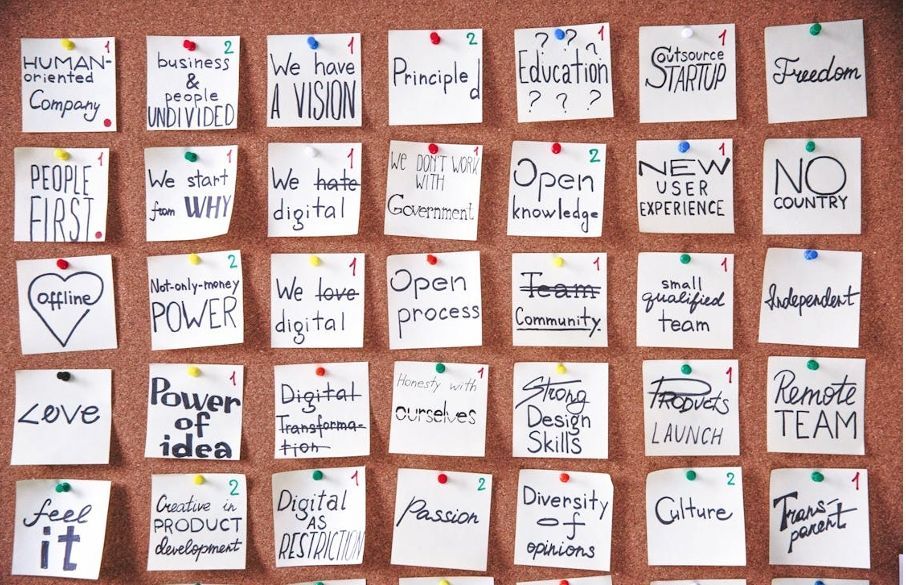 1
HUMAN-
oriented
Company
2
business
&
people
UNDIVIDED
1
We have
A VISION
2
Principled
? ? ? 1
Education
? ? ?
1
Outsource
STARTUP
Freedom
1
PEOPLE
FIRST
1
We start
from WHY
1
We hate
digital
1
WE DON'T WORK
WITH
Government
2
Open
knowledge
1
NEW
USER
EXPERIENCE
NO
COUNTRY
offline
2
Not-only-money
POWER
1
We love
digital
Open
process
1
Team
Community
1
small
qualified
team
Independent
Love
1
Power
of
idea
1
Digital
Transforma-
tion
1
Honesty with
ourselves
Strong
Design
Skills
1
Products
LAUNCH
Remote
TEAM
feel
it
2
Creative in
PRODUCT
development
1
Digital
AS
RESTRICTION
2
Passion
Diversity
of
opinions
2
Culture
1
Trans-
parent